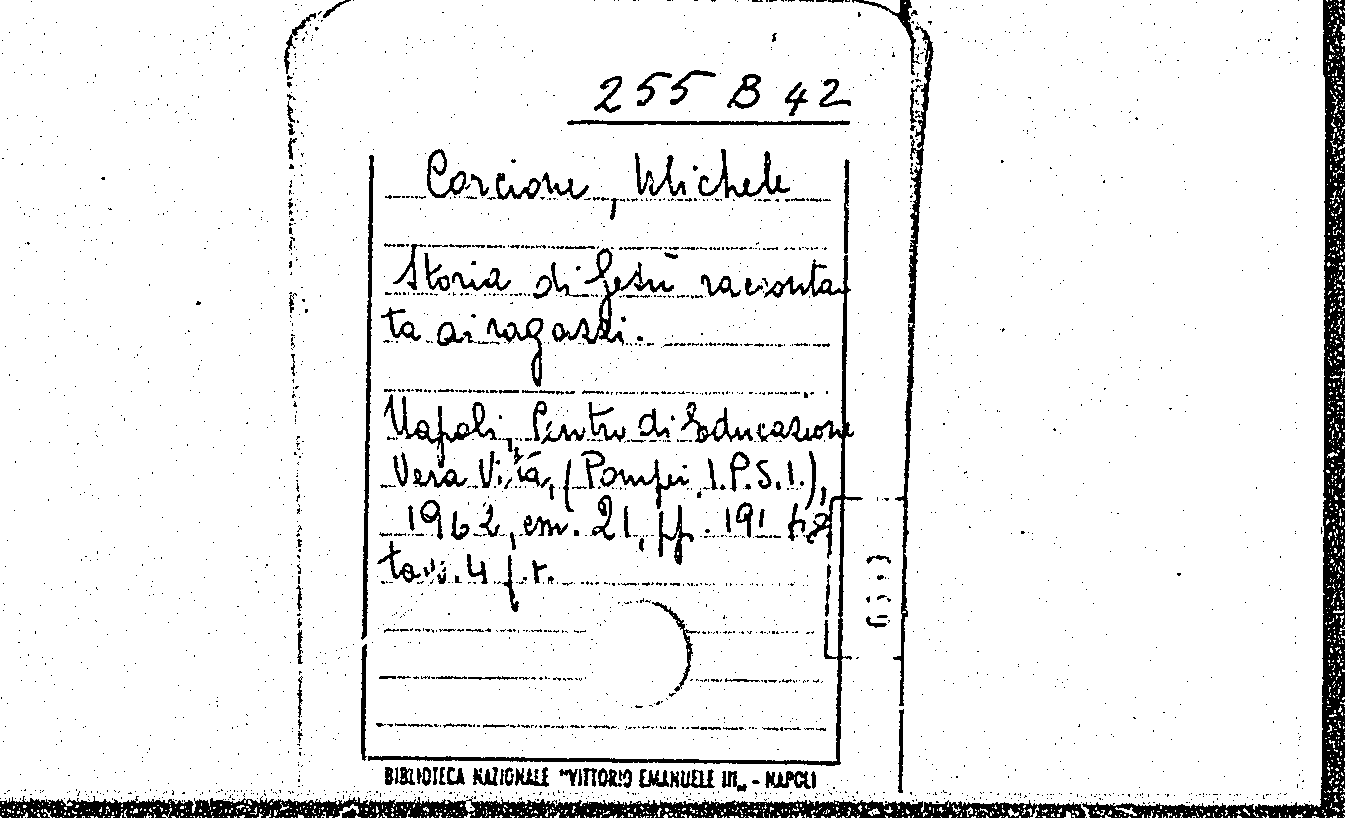 255 B 42
Corcione, Michele
Storia di Gesù racconta-
ta ai ragazzi.
Napoli, Centro di Educazione
Vera Vita, (Pompei, I.P.S.I.),
1962, cm. 21, pp. 191
tavv. 4 f.t.
BIBLIOTECA NAZIONALE "VITTORIO EMANUELE III„ - NAPOLI